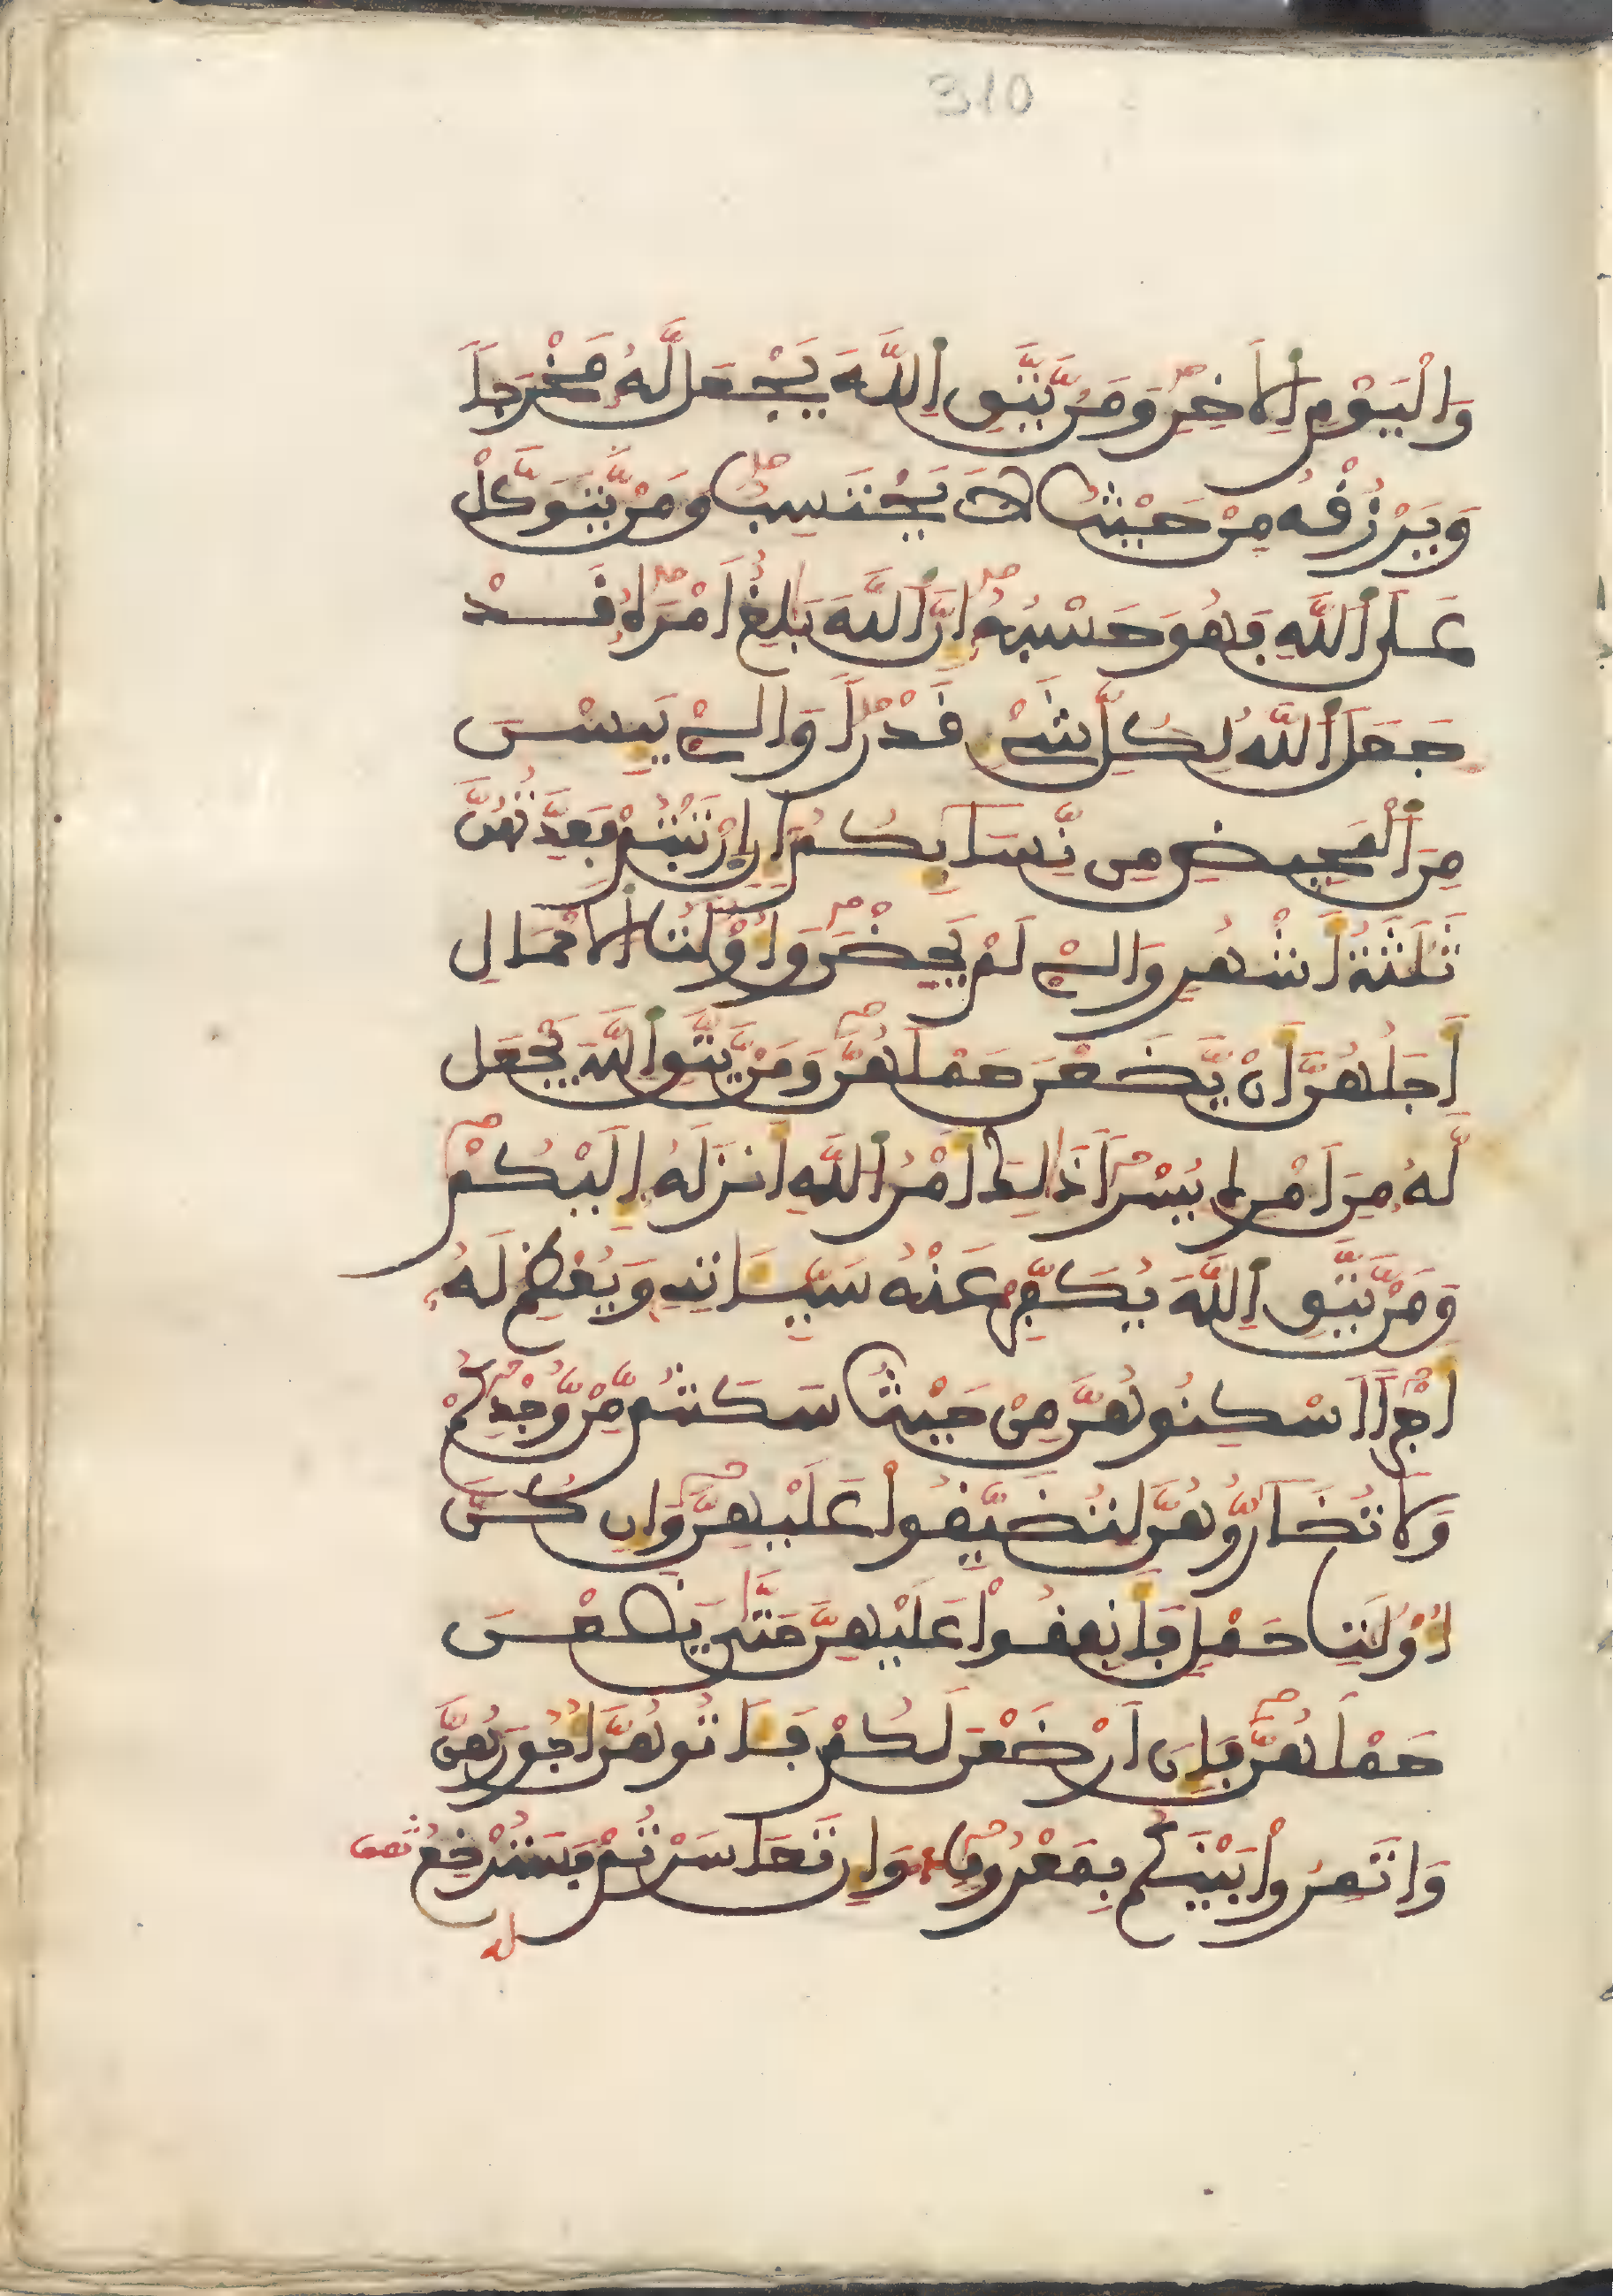 310
وَالْيَوْمِ اِ۬لَاخِرِ وَمَنْ يَّتَّقِ اِ۬للَّهَ يَجْعَل لَّهُ مَخْرَجاً
وَيَرْزُقْهُ مِنْ حَيْثُ لَا يَحْتَسِبُ وَمَنْ يَّتَوَكَّلْ
عَلَى اَ۬للَّهِ فَهُوَ حَسْبُهُ إِنَّ اَ۬للَّهَ بَٰلِغٌ اَمْرَهُ قَدْ
جَعَلَ اَ۬للَّهُ لِكُلِّ شَےْءٍ قَدْراً وَالِےْ يَئِسْنَ
مِنَ اَ۬لْمَحِيضِ مِن نِّسَائِكُمُ إِنِ اِرْتَبْتُمْ فَعِدَّتُهُنَّ
ثَلَٰثَةُ أَشْهُرٍ وَالِےْ لَمْ يَحِضْنَ وَأُوْلَٰتُ اُ۬لَاحْمَالِ
أَجَلُهُنَّ أَنْ يَّضَعْنَ حَمْلَهُنَّ وَمَنْ يَّتَّقِ اِ۬للَّهَ يَجْعَل
لَّهُ مِنَ اَمْرِهِ يُسْراً ذَٰلِكَ أَمْرُ اُ۬للَّهِ أَنزَلَهُ إِلَيْكُمْ
وَمَنْ يَّتَّقِ اِ۬للَّهَ يُكَفِّرْ عَنْهُ سَيِّـَٔاتِهِ وَيُعْظِمْ لَهُ
أَجْراً اَسْكِنُوهُنَّ مِنْ حَيْثُ سَكَنتُم مِّنْ وُّجْدِكُمْ
وَلَا تُضَارُّوهُنَّ لِتُضَيِّقُواْ عَلَيْهِنَّ وَإِن كُنَّ
أُوْلَٰتِ حَمْلٍ فَأَنفِقُواْ عَلَيْهِنَّ حَتَّىٰ يَضَعْنَ
حَمْلَهُنَّ فَإِنَ اَرْضَعْنَ لَكُمْ فَـَٔاتُوهُنَّ أُجُورَهُنَّ
وَاتَمِرُواْ بَيْنَكُم بِمَعْرُوفٍ وَإِن تَعَاسَرْتُمْ فَسَتُرْضِعُ
له